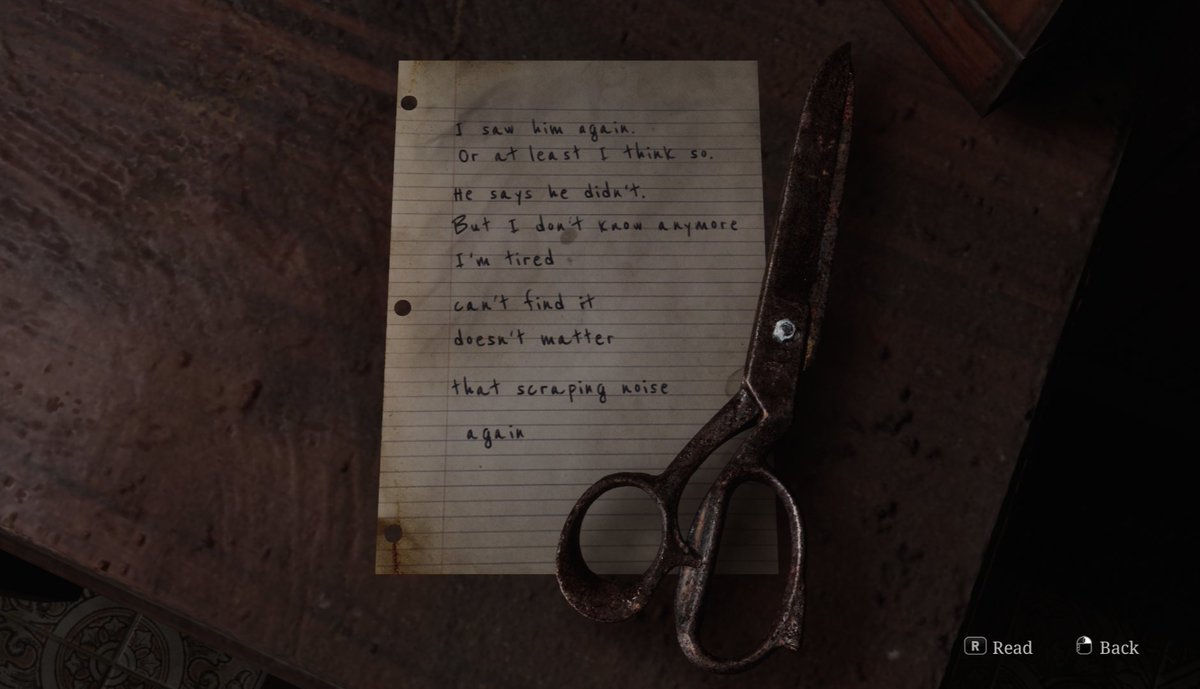 I saw him again.
Or at least I think so.
He says he didn't.
But I don't know anymore
I'm tired
can't find it
doesn't matter
that scraping noise
again
R Read
Back